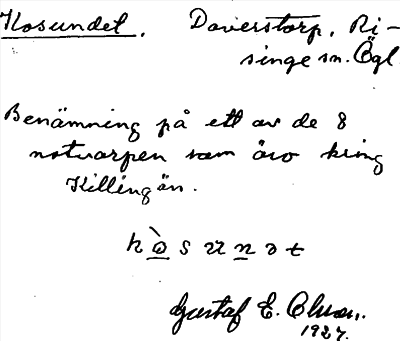 Kosundet. Doverstorp, Ri-
singe sn. Ögl.
Benämning på ett av de 8
notvarpen som äro kring
Killingön.
Gustaf E. Olsson.
1927.